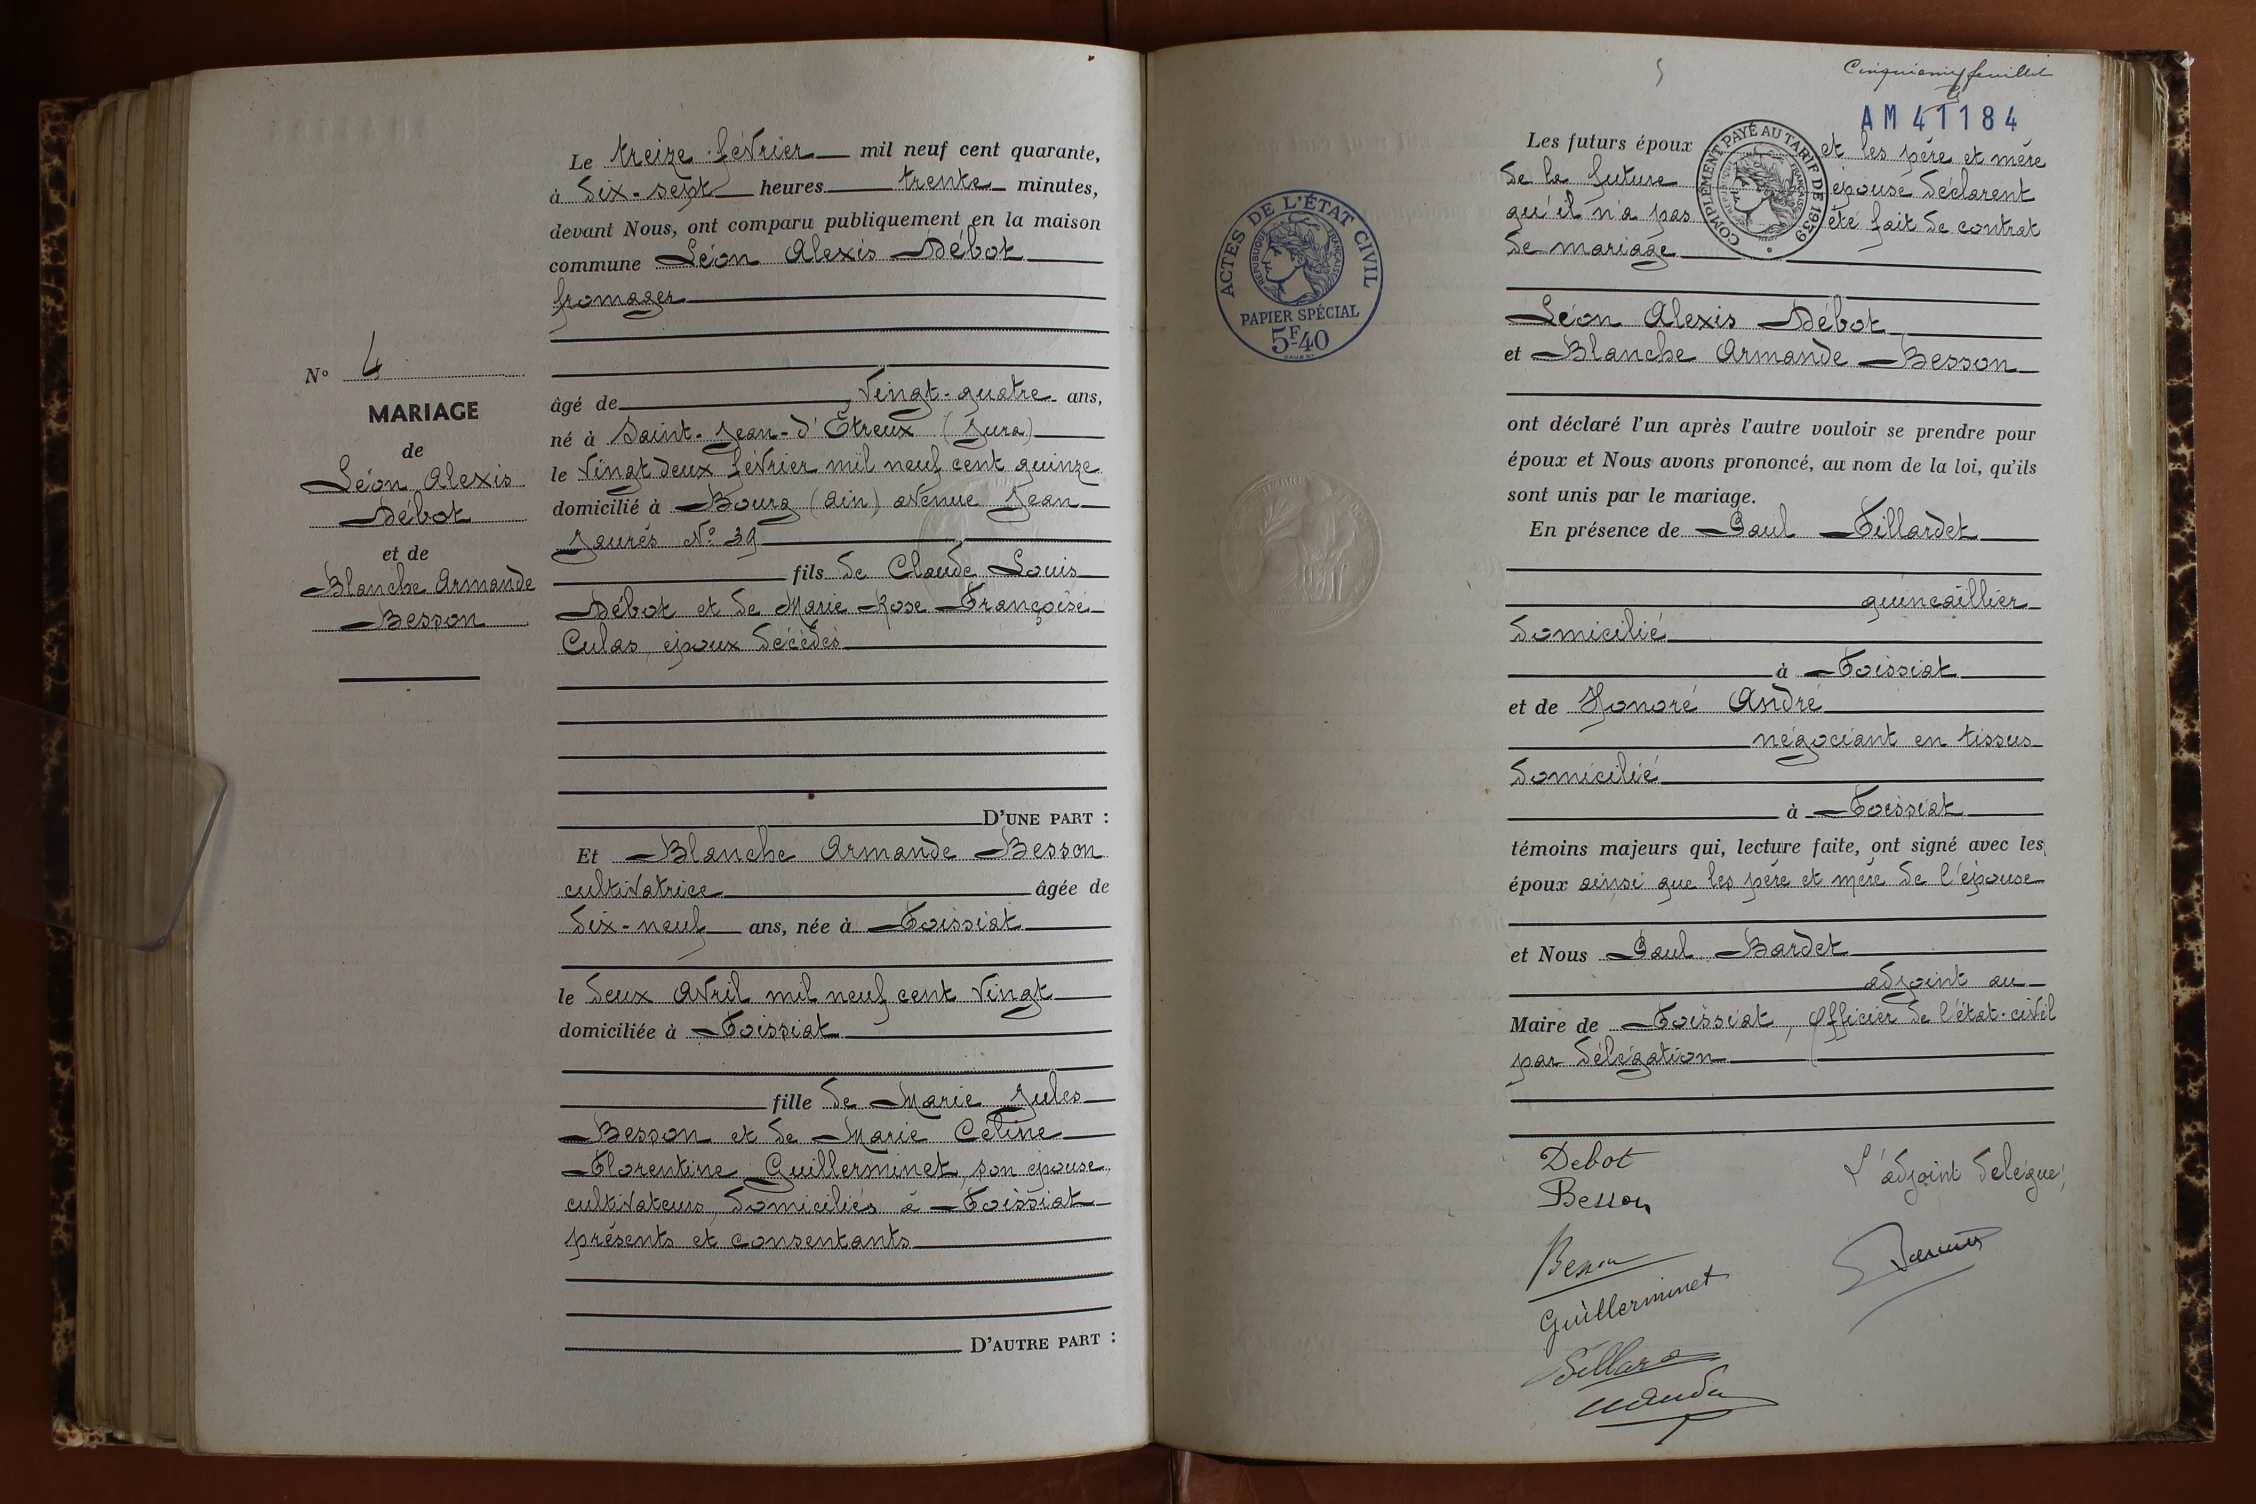 N° 4
MARIAGE
de
Léon Alexis
Débot
et de
Blanche Armande
Besson
Le treize février mil neuf cent quarante,
à dix-sept heures trente minutes,
devant Nous, ont comparu publiquement en la maison
commune Léon Alexis Débot
fromager
âgé de vingt-quatre ans,
né à Saint-Jean-d'Étreux (Jura)
le vingt deux février mil neuf cent quinze
domicilié à Bourg (Ain) avenue Jean
Jaurés N° 39
fils de Claude Louis
Débot et de Marie Rose Françoise
Culas, époux décédés
D'UNE PART :
Et Blanche Armande Besson
cultivatrice âgée de
dix-neuf ans, née à Toissiat
le deux Avril mil neuf cent vingt
domiciliée à Toissiat
fille de Marie Jules
Besson et de Marie Céline
Florentine Guillerminet, son épouse,
cultivateurs, domiciliés à Toissiat
présents et consentants
D'AUTRE PART :
5
Cinquième feuillet
AM 41184
ACTES DE L'ÉTAT CIVIL
RÉPUBLIQUE FRANÇAISE
PAPIER SPÉCIAL
5F40
COMPLÉMENT PAYÉ AU TARIF DE 1939
RÉPUBLIQUE FRANÇAISE
Les futurs époux et les père et mère
de la future épouse déclarent
qu'il n'a pas été fait de contrat
de mariage
Léon Alexis Débot
et Blanche Armande Besson
ont déclaré l'un après l'autre vouloir se prendre pour
époux et Nous avons prononcé, au nom de la loi, qu'ils
sont unis par le mariage.
En présence de Paul Tillardet
quincaillier
domicilié
à Toissiat
et de Honoré André
négociant en tissus
domicilié
à Toissiat
témoins majeurs qui, lecture faite, ont signé avec les
époux ainsi que les père et mère de l'épouse
et Nous Paul Bardet
adjoint au
Maire de Toissiat, officier de l'état-civil
par délégation
Debot
Besson
Besson
Guillerminet
L'adjoint délégué,